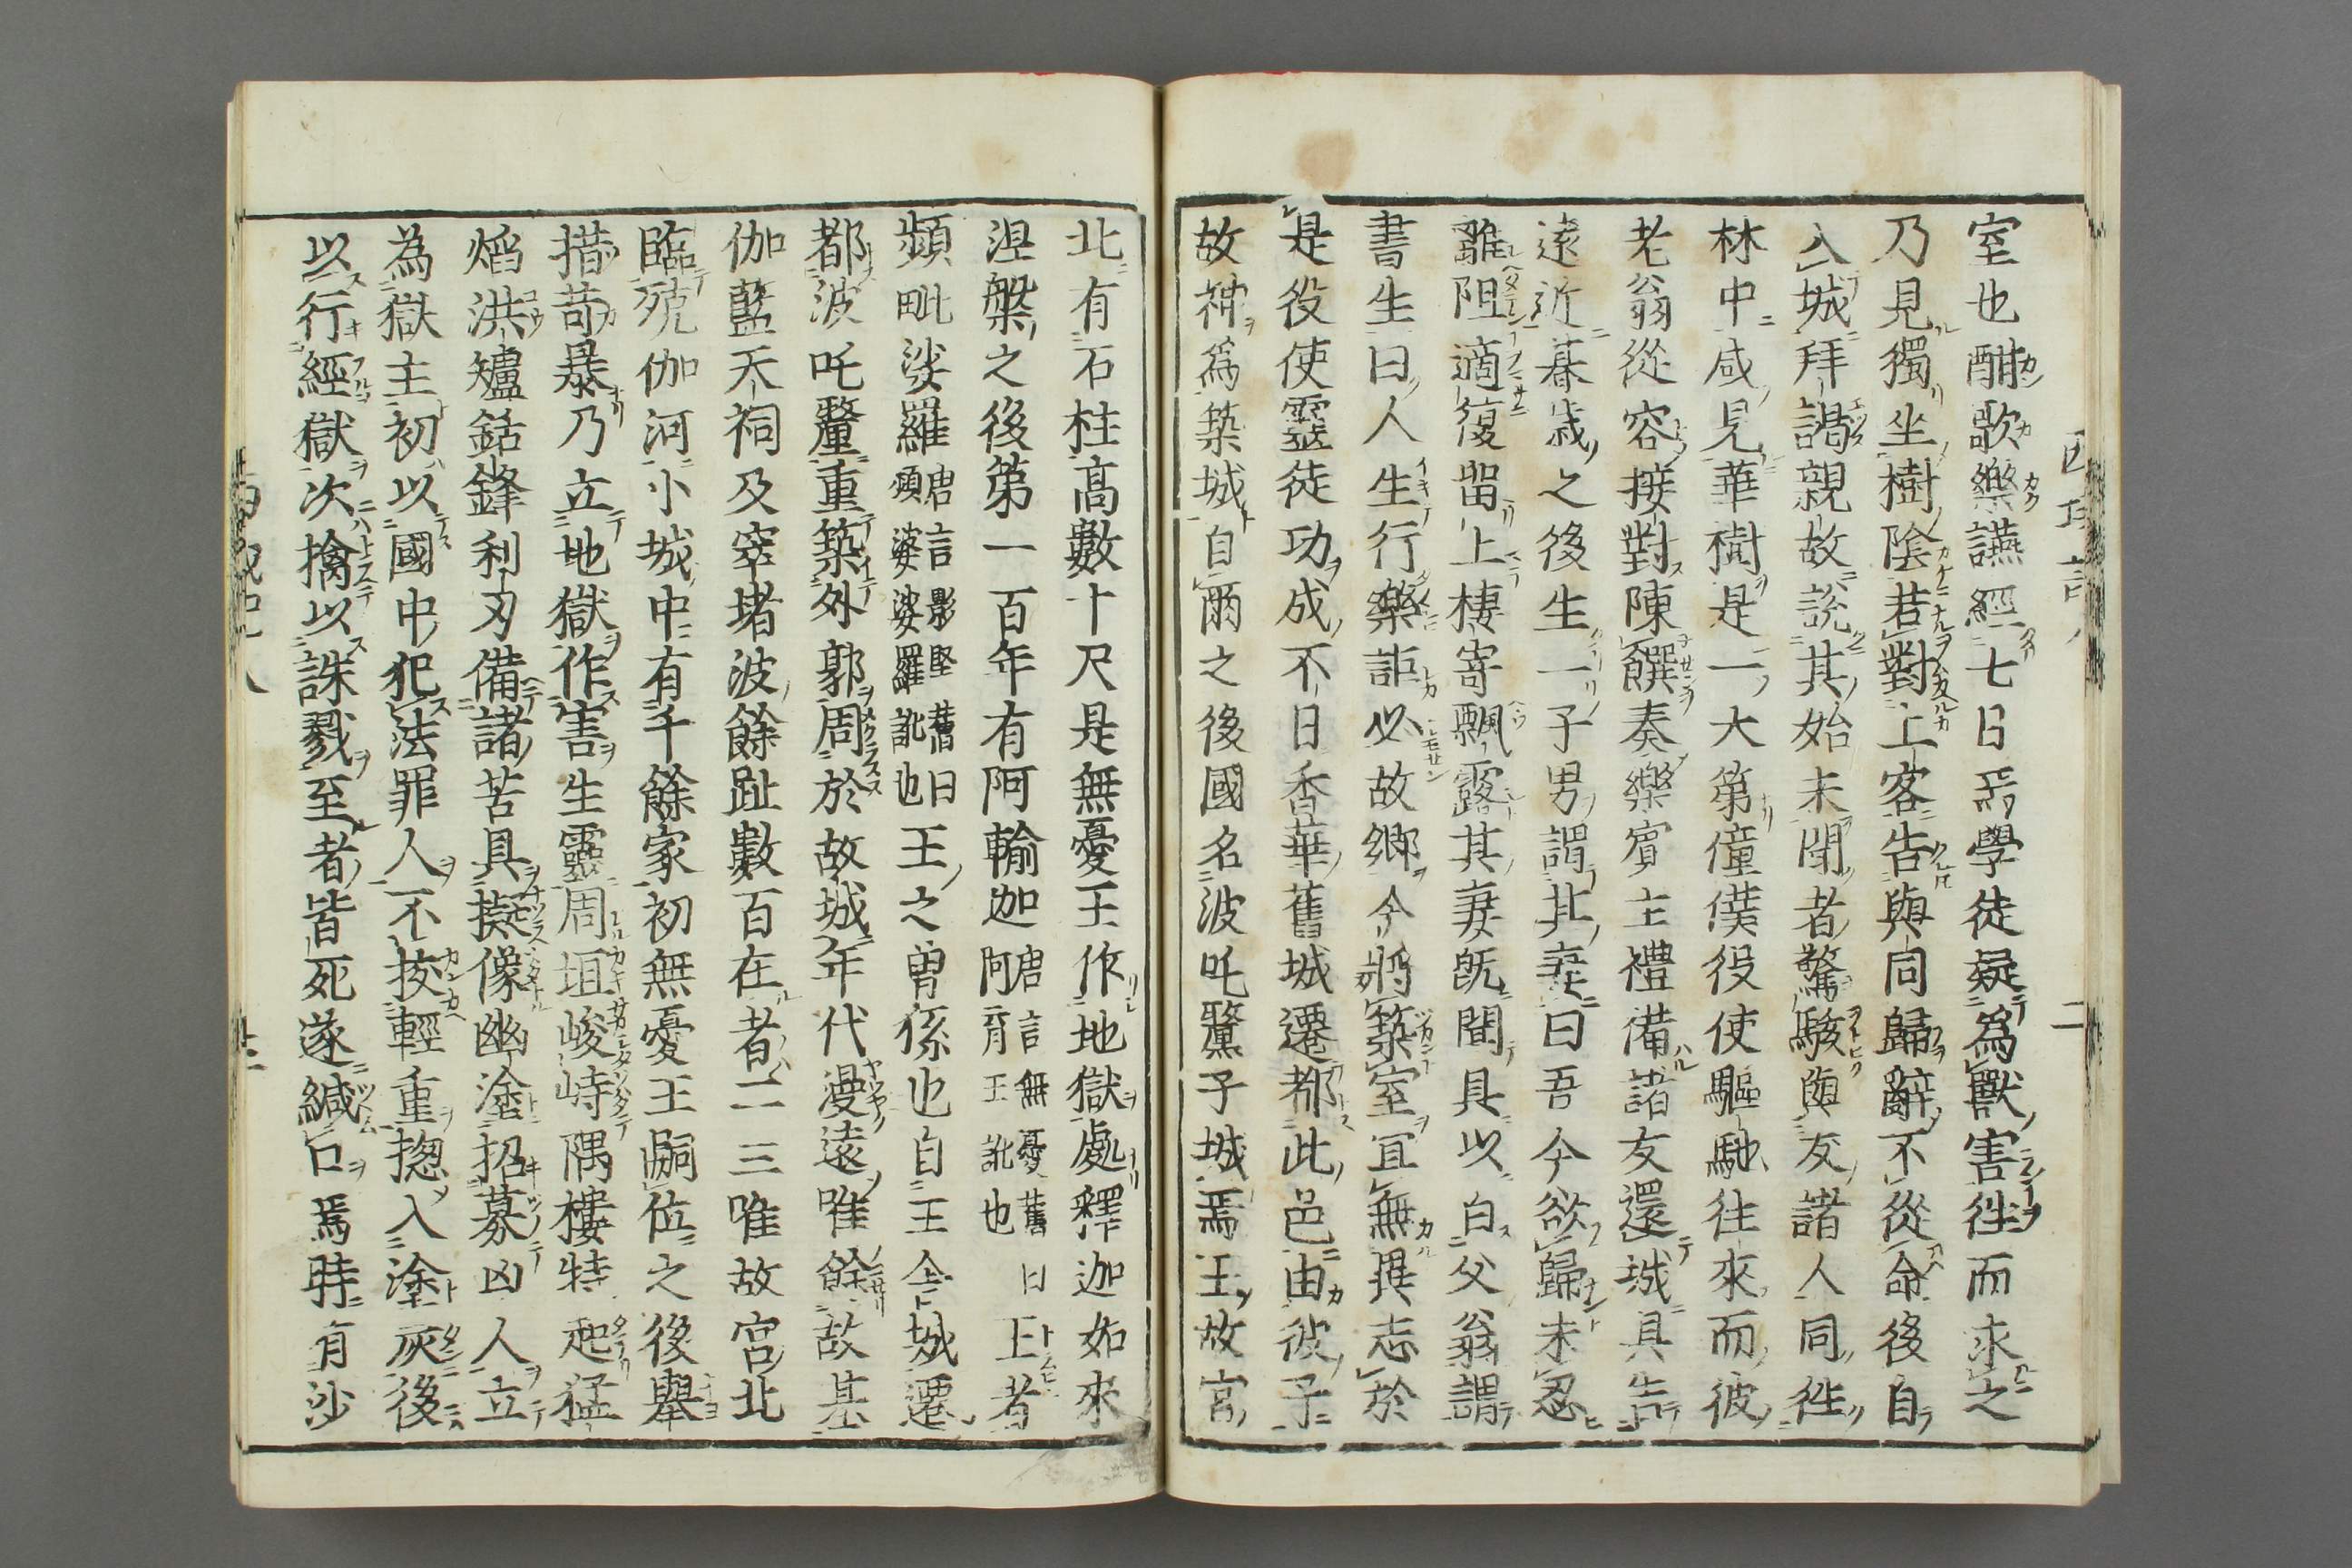 室也酣歌樂讌經七日焉學徒疑為獸害徃而求之
乃見獨坐樹陰若對上客告與同歸辭不從命後自
入城拜謁親故說其始末聞者驚駭與友諸人同徃
林中咸見華樹是一大第僮僕役使驅馳往來而彼
老翁從容接對陳饌奏樂賓主禮備諸友還城具告
遠近朞歲之後生一子男謂其妻曰吾今欲歸未忍
離阻適復留止棲寄飄露其妻既聞具以白父翁謂
書生曰人生行樂詎必故鄉今將築室宜無異志於
是役使靈徒功成不日香華舊城遷都此邑由彼子
故神為築城自爾之後國名波吒釐子城焉王故宮
北有石柱高數十尺是無憂王作地獄處釋迦如來
涅槃之後第一百年有阿輸迦唐言無憂舊曰阿育王訛也王者
頻毗娑羅唐言影堅舊曰頻婆娑羅訛也王之曾孫也自王舍城遷
都波吒釐重築外郭周於故城年代漫遠唯餘故基
伽藍天祠及窣堵波餘趾數百在者二三唯故宮北
臨殑伽河小城中有千餘家初無憂王嗣位之後舉
措苛暴乃立地獄作害生靈周垣峻峙隅樓特起猛
焰洪爐銛鋒利刃備諸苦具擬像幽塗招募凶人立
為獄主初以國中犯法罪人不挍輕重揔入塗灰後
以行經獄次擒以誅戮至者皆死遂緘口焉時有沙